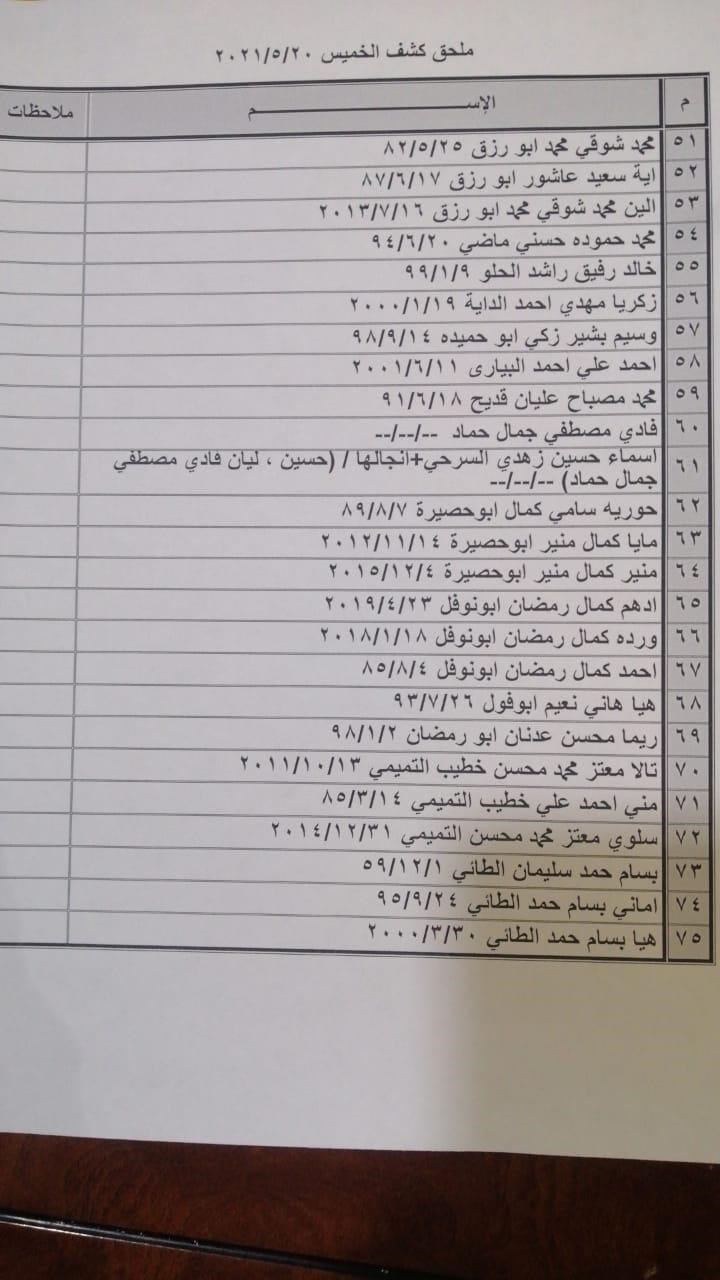 ملحق كشف الخميس ٢٠٢١/٥/٢٠
م الإســـــــــم ملاحظات
٥١ محمد شوقي محمد ابو رزق ٨٢/٥/٢٥
٥٢ اية سعيد عاشور ابو رزق ٨٧/٦/١٧
٥٣ الين محمد شوقي محمد ابو رزق ٢٠١٣/٧/١٦
٥٤ محمد حموده حسني ماضي ٩٤/٦/٢٠
٥٥ خالد رفيق راشد الحلو ٩٩/١/٩
٥٦ زكريا مهدي احمد الداية ٢٠٠٠/١/١٩
٥٧ وسيم بشير زكي ابو حميده ٩٨/٩/١٤
٥٨ احمد علي احمد البيارى ٢٠٠١/٦/١١
٥٩ محمد مصباح عليان قديح ٩١/٦/١٨
٦٠ فادي مصطفي جمال حماد --/--/--
٦١ اسماء حسين زهدي السرحي+انجالها / (حسين ، ليان فادي مصطفي
جمال حماد) --/--/--
٦٢ حوريه سامي كمال ابوحصيرة ٨٩/٨/٧
٦٣ مايا كمال منير ابوحصيرة ٢٠١٢/١١/١٤
٦٤ منير كمال منير ابوحصيرة ٢٠١٥/١٢/٤
٦٥ ادهم كمال رمضان ابونوفل ٢٠١٩/٤/٢٣
٦٦ ورده كمال رمضان ابونوفل ٢٠١٨/١/١٨
٦٧ احمد كمال رمضان ابونوفل ٨٥/٨/٤
٦٨ هيا هاني نعيم ابوفول ٩٣/٧/٢٦
٦٩ ريما محسن عدنان ابو رمضان ٩٨/١/٢
٧٠ تالا معتز محمد محسن خطيب التميمي ٢٠١١/١٠/١٣
٧١ مني احمد علي خطيب التميمي ٨٥/٣/١٤
٧٢ سلوي معتز محمد محسن التميمي ٢٠١٤/١٢/٣١
٧٣ بسام حمد سليمان الطائي ٥٩/١٢/١
٧٤ اماني بسام حمد الطائي ٩٥/٩/٢٤
٧٥ هيا بسام حمد الطائي ٢٠٠٠/٣/٣٠